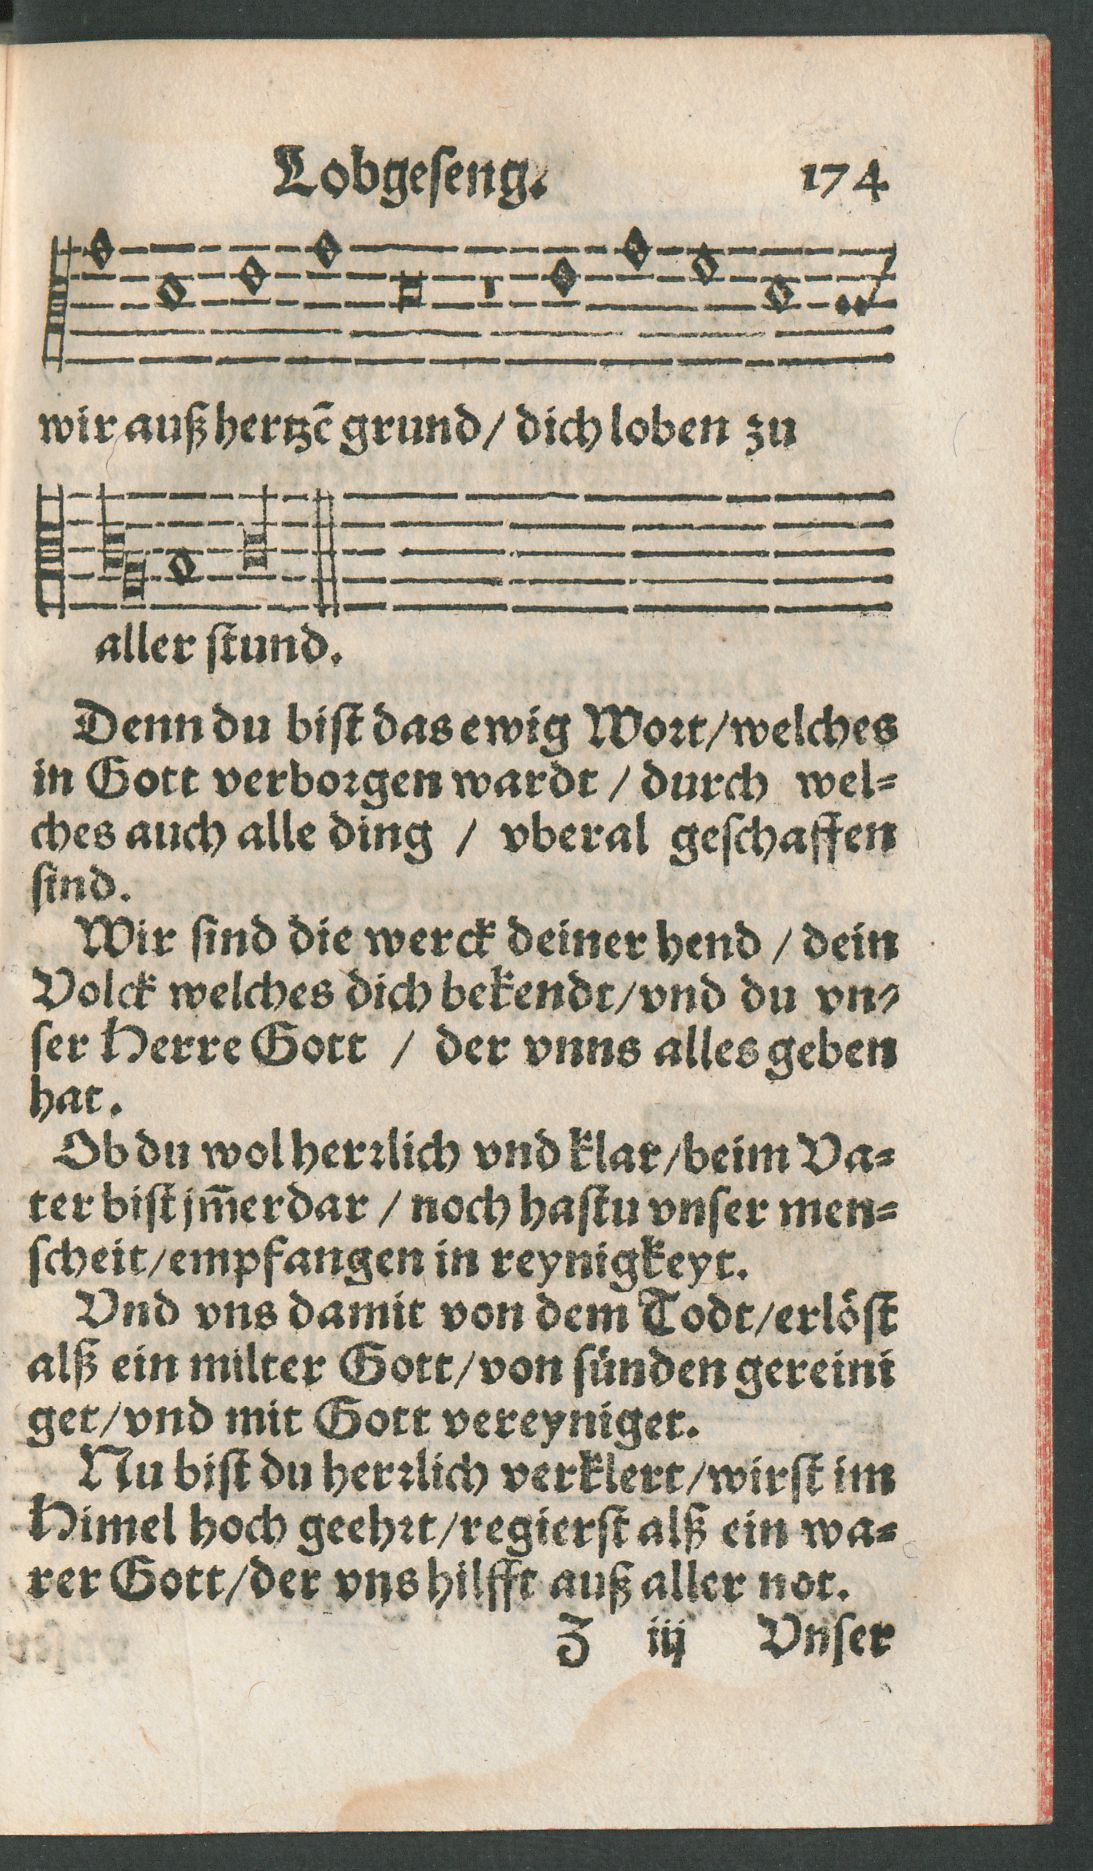 Lobgeseng. 174
wir auß hertzē grund/ dich loben zu
aller stund.
Denn du bist das ewig Wort/welches
in Gott verborgen wardt / durch wel-
ches auch alle ding / vberal geschaffen
sind.
Wir sind die werck deiner hend / dein
Volck welches dich bekendt/vnd du vn-
ser Herre Gott / der vnns alles geben
hat.
Ob du wol herrlich vnd klar/beim Va-
ter bist jm̄erdar / noch hastu vnser men-
scheit/empfangen in reynigkeyt.
Vnd vns damit von dem Todt/erlöst
alß ein milter Gott/von sünden gereini
get/vnd mit Gott vereyniget.
Nu bist du herrlich verklert/wirst im
Himel hoch geehrt/regierst alß ein wa-
rer Gott/der vns hilfft auß aller not.
Z iij Vnser